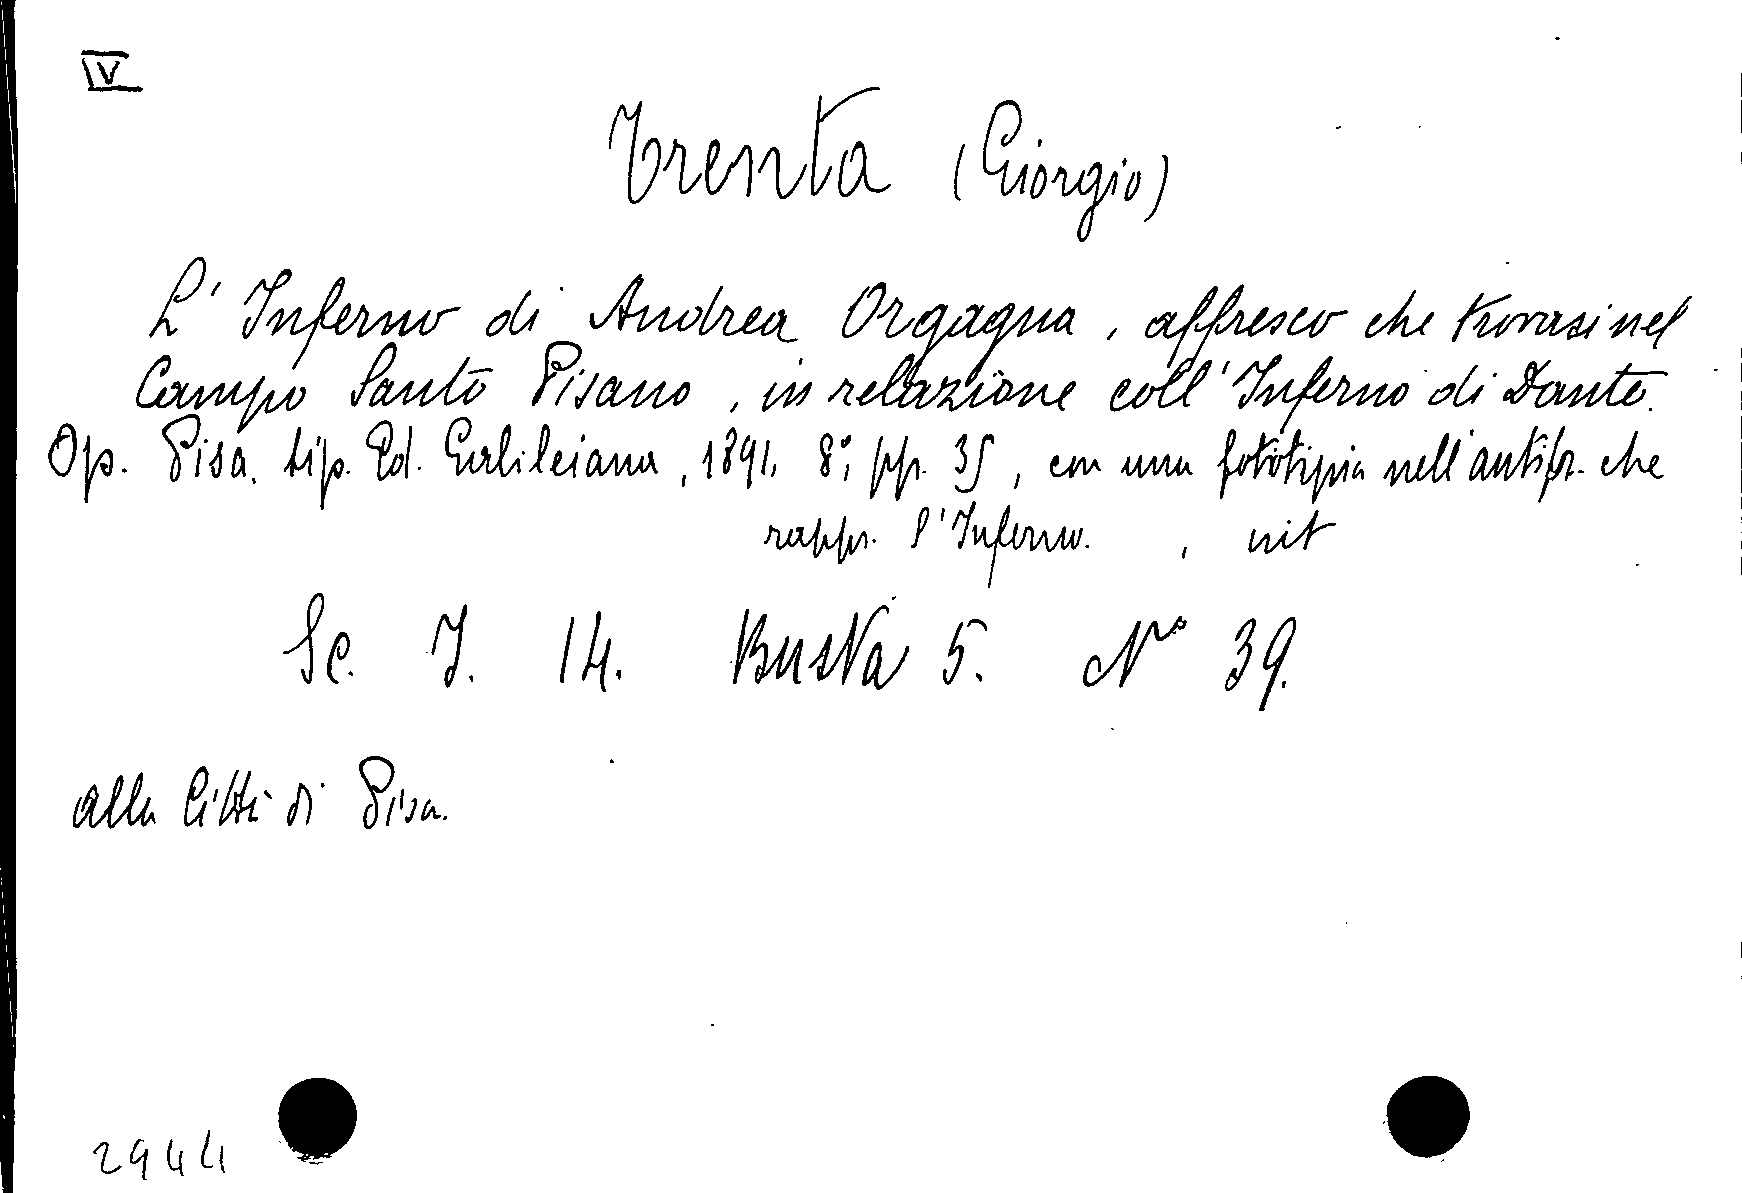 IV
Trenta (Giorgio)
L' Inferno di Andrea Orgagna, affresco che trovasi nel
Campo Santo Pisano, in relazione coll' Inferno di Dante.
Op. Pisa. tip. Ed. Galileiana, 1891. 8°, pp. 35, con una fototipia nell'antifr. che
rappr. l'Inferno. ,
Sc. I. 14. Busta 5. N° 39.
alla Città di Pisa.
2944